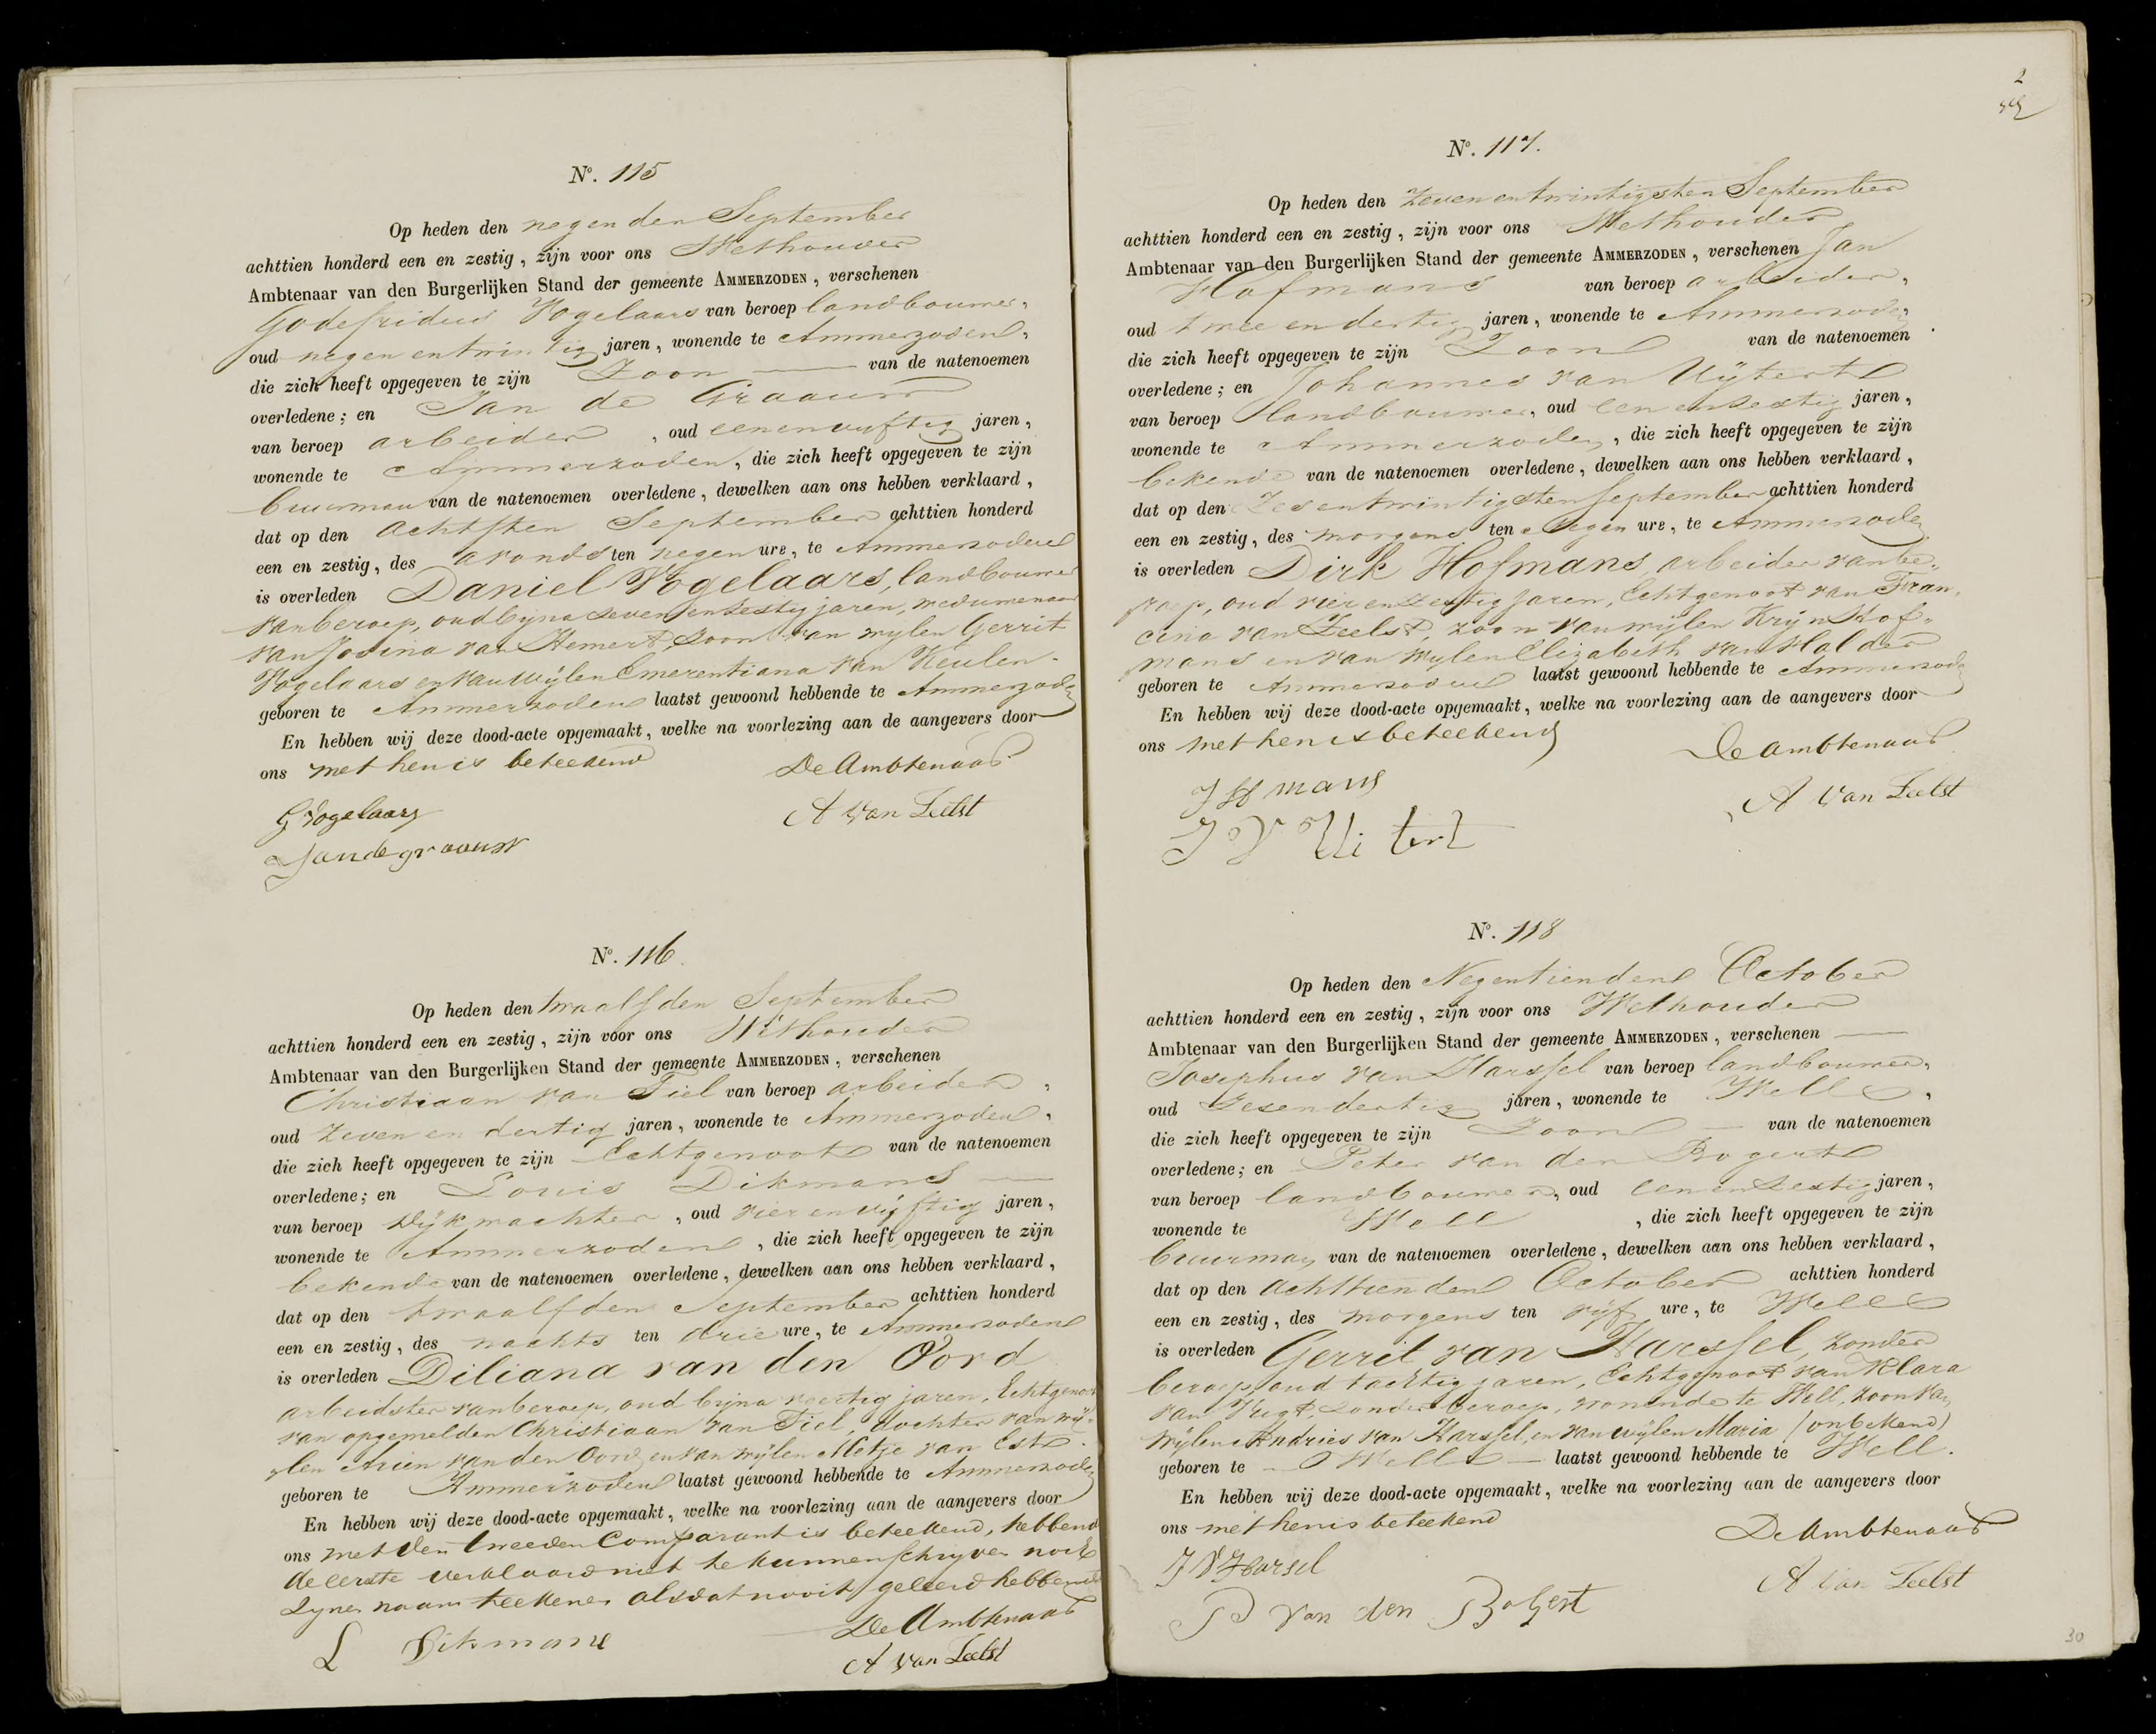 N°. 115
Op heden den negenden September
achttien honderd een en zestig, zijn voor ons Wethouder
Ambtenaar van den Burgerlijken Stand der gemeente AMMERZODEN, verschenen
Godefridus Vogelaars van beroep landbouwer,
oud negen en twintig jaren, wonende te Ammerzoden,
die zich heeft opgegeven te zijn Zoon van de natenoemen
overledene; en Jan de Graauw
van beroep arbeider, oud eenenvyftig jaren,
wonende te Ammerzoden, die zich heeft opgegeven te zijn
buurman van de natenoemen overledene, dewelken aan ons hebben verklaard,
dat op den achtsten September achttien honderd
een en zestig, des avonds ten negen ure, te Ammerzoden
is overleden Daniel Vogelaars, landbouwer
van beroep, oud byna zeven en zestig jaren, weduwenaar
van Josina van Hemert, zoon van wylen Gerrit
Vogelaars en van wylen Emerentiana van Keulen.
geboren te Ammerzoden laatst gewoond hebbende te Ammerzoden
En hebben wij deze dood-acte opgemaakt, welke na voorlezing aan de aangevers door
ons met hen is beteekend
De Ambtenaar
G Vogelaars
A van Zeelst
Jan de graauw
N°. 116.
Op heden den twaalfden September
achttien honderd een en zestig, zijn voor ons Wethouder
Ambtenaar van den Burgerlijken Stand der gemeente AMMERZODEN, verschenen
Christiaan van Tiel van beroep arbeider,
oud zeven en dertig jaren, wonende te Ammerzoden,
die zich heeft opgegeven te zijn Echtgenoot van de natenoemen
overledene; en Louis Dikmans
van beroep Dijkwachter, oud vier en vijftig jaren,
wonende te Ammerzoden, die zich heeft opgegeven te zijn
bekende van de natenoemen overledene, dewelken aan ons hebben verklaard,
dat op den twaalfden September achttien honderd
een en zestig, des nachts ten drie ure, te Ammerzoden
is overleden Diliana van den Oord
arbeidster van beroep, oud byna veertig jaren, Echtgenoot
van opgemelden Christiaan van Tiel, dochter van wij-
len Arien van den Oord en van wylen Metje van Est.
geboren te Ammerzoden laatst gewoond hebbende te Ammerzoden
En hebben wij deze dood-acte opgemaakt, welke na voorlezing aan de aangevers door
ons met den tweeden Comparant is beteekend, hebbend
de eerste verklaard niet te kunnen schryven noch
zynen naam teekenen als dat nooit geleerd hebbende
De Ambtenaar
L Dikmans
A van Zeelst
2
N°. 117.
Op heden den Zeven en twintigsten September
achttien honderd een en zestig, zijn voor ons Wethouder
Ambtenaar van den Burgerlijken Stand der gemeente AMMERZODEN, verschenen Jan
Hofmans van beroep arbeider,
oud twee en dertig jaren, wonende te Ammerzoden,
die zich heeft opgegeven te zijn Zoon van de natenoemen
overledene; en Johannes van Uijtert
van beroep landbouwer, oud een en zestig jaren,
wonende te Ammerzoden, die zich heeft opgegeven te zijn
bekende van de natenoemen overledene, dewelken aan ons hebben verklaard,
dat op den Zes en twintigsten September achttien honderd
een en zestig, des morgens ten negen ure, te Ammerzoden
is overleden Dirk Hofmans, arbeider van be-
roep, oud vier en zestig jaren, Echtgenoot van Fran-
cina van Zeelst, zoon van wijlen Krijn Hof-
mans en van wylen Elizabeth van Halder
geboren te Ammerzoden laatst gewoond hebbende te Ammerzoden
En hebben wij deze dood-acte opgemaakt, welke na voorlezing aan de aangevers door
ons met hen is beteekend
De ambtenaar
J Hofmans
A van Zeelst
J V Uitert
N°. 118
Op heden den Negentienden October
achttien honderd een en zestig, zijn voor ons Wethouder
Ambtenaar van den Burgerlijken Stand der gemeente AMMERZODEN, verschenen
Josephus van Harssel van beroep landbouwer,
oud Zesendertig jaren, wonende te Well,
die zich heeft opgegeven te zijn Zoon van de natenoemen
overledene; en Peter van den Bogert
van beroep landbouwer, oud een en zestig jaren,
wonende te Well, die zich heeft opgegeven te zijn
buurman van de natenoemen overledene, dewelken aan ons hebben verklaard,
dat op den achttienden October achttien honderd
een en zestig, des morgens ten vijf ure, te Well
is overleden Gerrit van Harssel, zonder
beroep, oud tachtig jaren, Echtgenoot van Klara
van Vugt, zonder beroep, wonende te Well, zoon van
wijlen Andries van Harssel, en van wijlen Maria (onbekend)
geboren te Well laatst gewoond hebbende te Well.
En hebben wij deze dood-acte opgemaakt, welke na voorlezing aan de aangevers door
ons met hen is beteekend
De Ambtenaar
J V Harsel
A van Zeelst
P van den Bogert
30